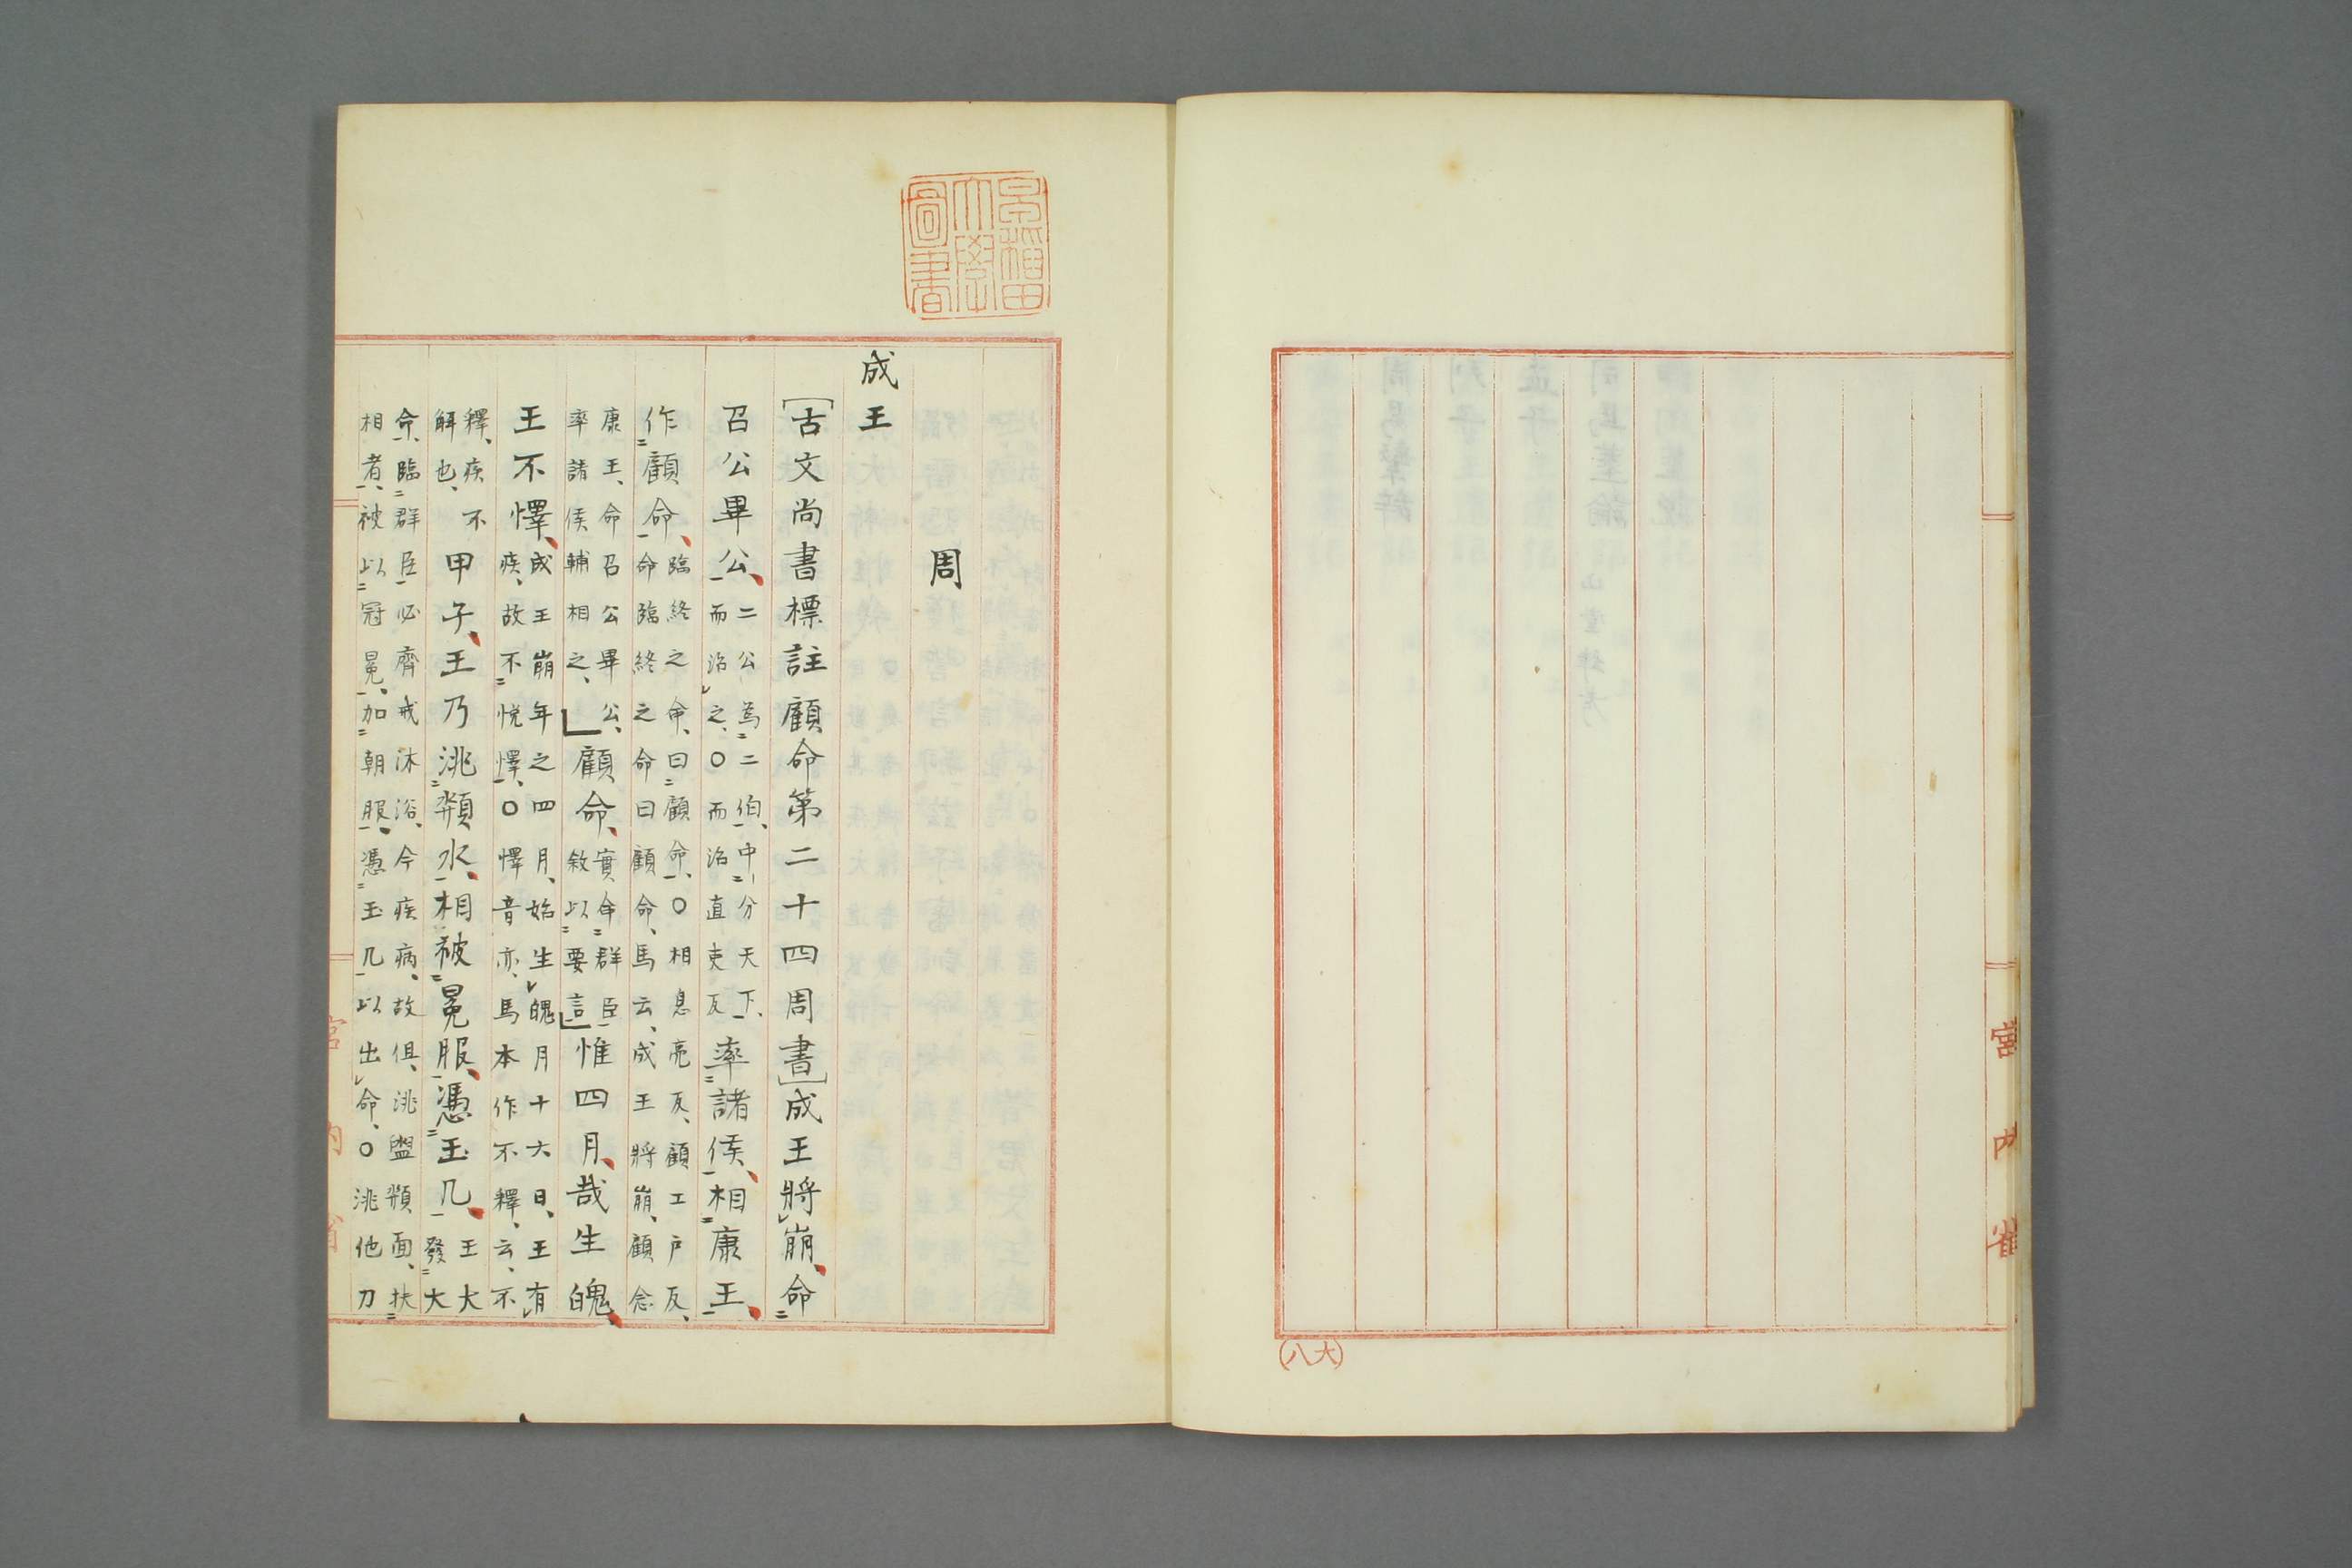 宮内省
(大八)
早稲田大學圖書
周
成王
[古文尚書標註顧命第二十四周書]成王將崩、命
召公畢公、二公為二伯、中分天下、而治之、○而治直吏反率諸侯、相康王、
作顧命、臨終之命、曰顧命、○相息亮反、顧工戶反、命臨終之命曰顧命、馬云、成王將崩、顧念
康王、命召公畢公、率諸侯輔相之、」顧命、實命群臣敘以要言」惟四月、哉生魄、
王不懌、成王崩年之四月、始生魄月十六日、王有疾、故不悅懌、○懌音亦、馬本作不釋、云、不
釋、疾不解也、甲子、王乃洮頮水、相被冕服、憑玉几、王大發大
命、臨群臣必齊戒沐浴、今疾病、故但、洮盥頮面、扶相者、被以冠冕、加朝服、憑玉几以出命、○洮他刀
宮内省